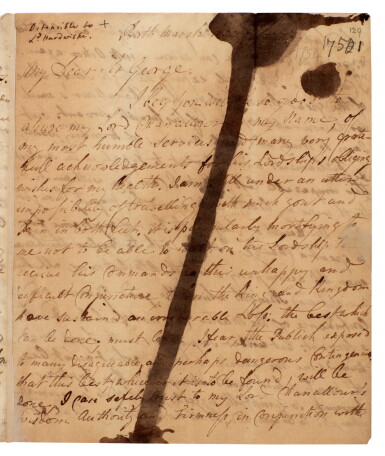 Ostensible to +
Ld Hardwicke.
North marsh
129
1751
My Dear Sr George.
I beg you will be so good to
my Lord Chancellor my Name, of
my most humble services and many very grate
full acknowledgements for his Lordships obliging
wishes for my health. I am still under an utter
impossibility of travelling with much gout and
it is particularly mortifying to
me not to be able to wait on his Lordship to
receive his commands in this unhappy and
difficult conjuncture. the King and Kingdom
have sustained an irreparable loss. the best which
can be done must I fear, the Publick exposed
to many disagreeable, and perhaps dangerous contingencies
that this best, wherever it is to be found, will be
done I can safely trust to my Lord Chancellour's
Wisdom Authority and Firmness, in conjunction with